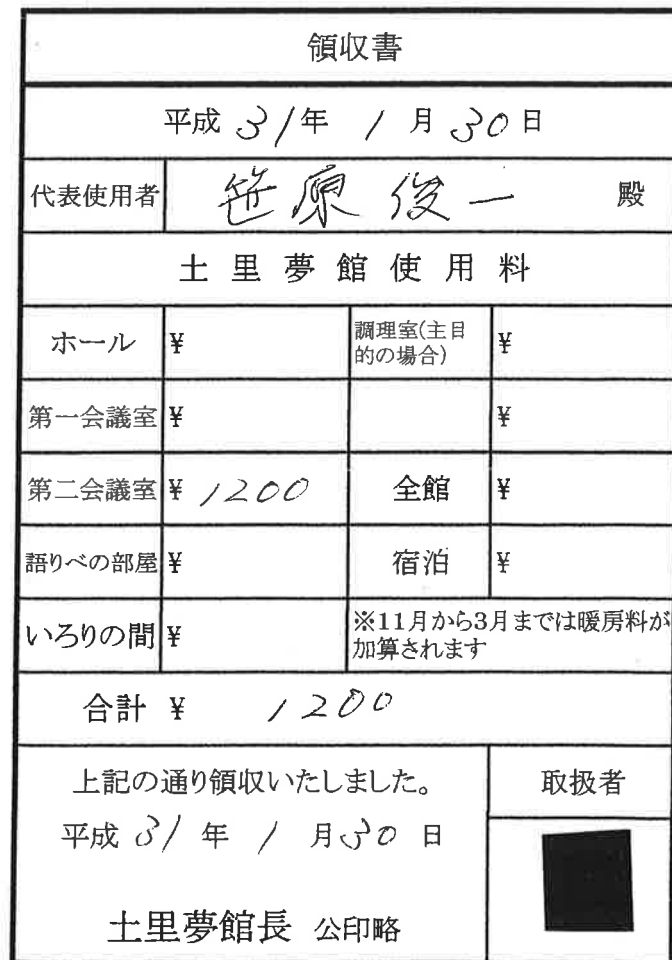 領収書
平成 31年 1月30日
代表使用者 笹原俊一 殿
土里夢館使用料
ホール ¥ 調理室(主目的の場合) ¥
第一会議室 ¥ ¥
第二会議室 ¥ 1200 全館 ¥
語りべの部屋 ¥ 宿泊 ¥
いろりの間 ¥ ※11月から3月までは暖房料が
加算されます
合計 ¥ 1200
上記の通り領収いたしました。 取扱者
平成 31年 1月30日
土里夢館長 公印略